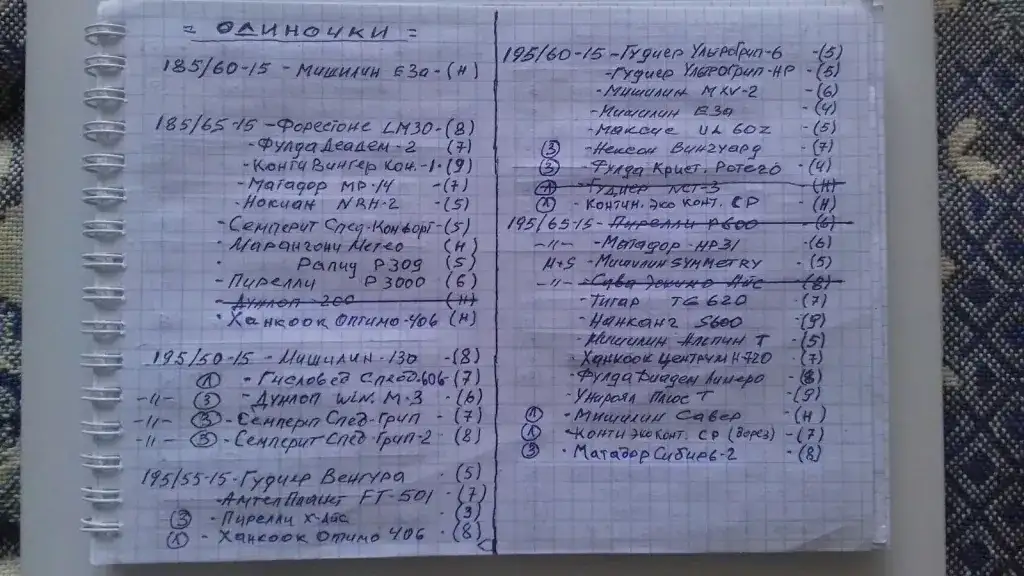 = ОДИНОЧКИ =
185/60-15 - Мишилин Е3а - (Н)
185/65-15 - Форестоне LM30 - (8)
- Фулда Деадем-2 (7)
- Конти Винтер Кон.-1 - (9)
- Матадор МР-14 - (7)
- Нокиан NRH-2 - (5)
- Семперит Спед-Конворт - (5)
- Марангони Метео (Н)
- Рапид Р309 (5)
- Пирелли Р3000 (6)
- Дунлоп 200 (Н)
- Ханкоок Оптимо-406 (Н)
195/50-15 - Мишилин-130 - (8)
(1) - Гисловед Спеед-606 - (7)
-"- (3) - Дунлоп win. М-3 - (6)
-"- (3) - Семперит Спед-Грип - (7)
-"- (3) - Семперит Спед-Грип-2 - (8)
195/55-15 - Гудиер Вентура - (5)
- Амтел Планет FT-501 - (7)
(3) - Пирелли Х-Айс - (3)
(1) - Ханкоок Оптимо 406 - (8)
195/60-15 - Гудиер Ультрогрип-6 - (5)
- Гудиер Ультрогрип-НР - (5)
- Мишилин MXV-2 - (6)
- Мишилин Е3а - (4)
- Максис UA 602 - (5)
(3) - Нексен Вингуард - (7)
(3) - Фулда Крист. Ротего - (4)
(1) - Гудиер NCT-3 - (Н)
(1) - Контин. Эко Конт. СР - (Н)
195/65-15 - Пирелли Р600 - (6)
-"- - Матадор НР31 - (6)
M+S - Мишилин SYMMETRY - (5)
-"- - Сава Эскимо Айс - (8)
- Тигар TG 620 - (7)
- Нанканг S600 - (9)
- Мишилин Алпин Т - (5)
- Ханкоок Центрум Н720 - (7)
- Фулда Диадем Линеро - (8)
- Унироял Плюс Т - (9)
(1) - Мишилин Савер - (Н)
(1) - Конти Экоконт. СР (Верез) - (7)
(3) - Матадор Сибирь-2 - (8)